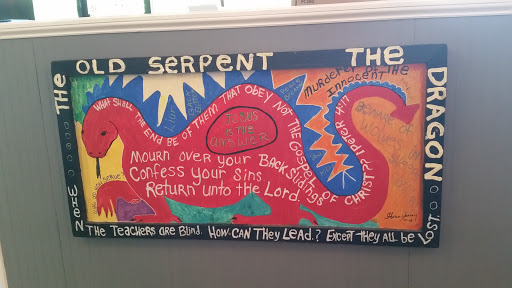 THE OLD SERPENT THE DRAGON
WHEN THE TEACHERS ARE BLIND. HOW CAN THEY LEAD.? EXCEPT THEY ALL BE LOST.
MURDERER OF THE
INNOCENT
WHAT SHALL THE END BE OF THEM THAT OBEY NOT THE GOSPEL OF CHRIST?? I PETER 4:17
JESUS
IS THE
ANSWER
MOURN OVER YOUR BACKSLIDINGS
CONFESS YOUR SINS
RETURN UNTO THE LORD.
BEWARE OF